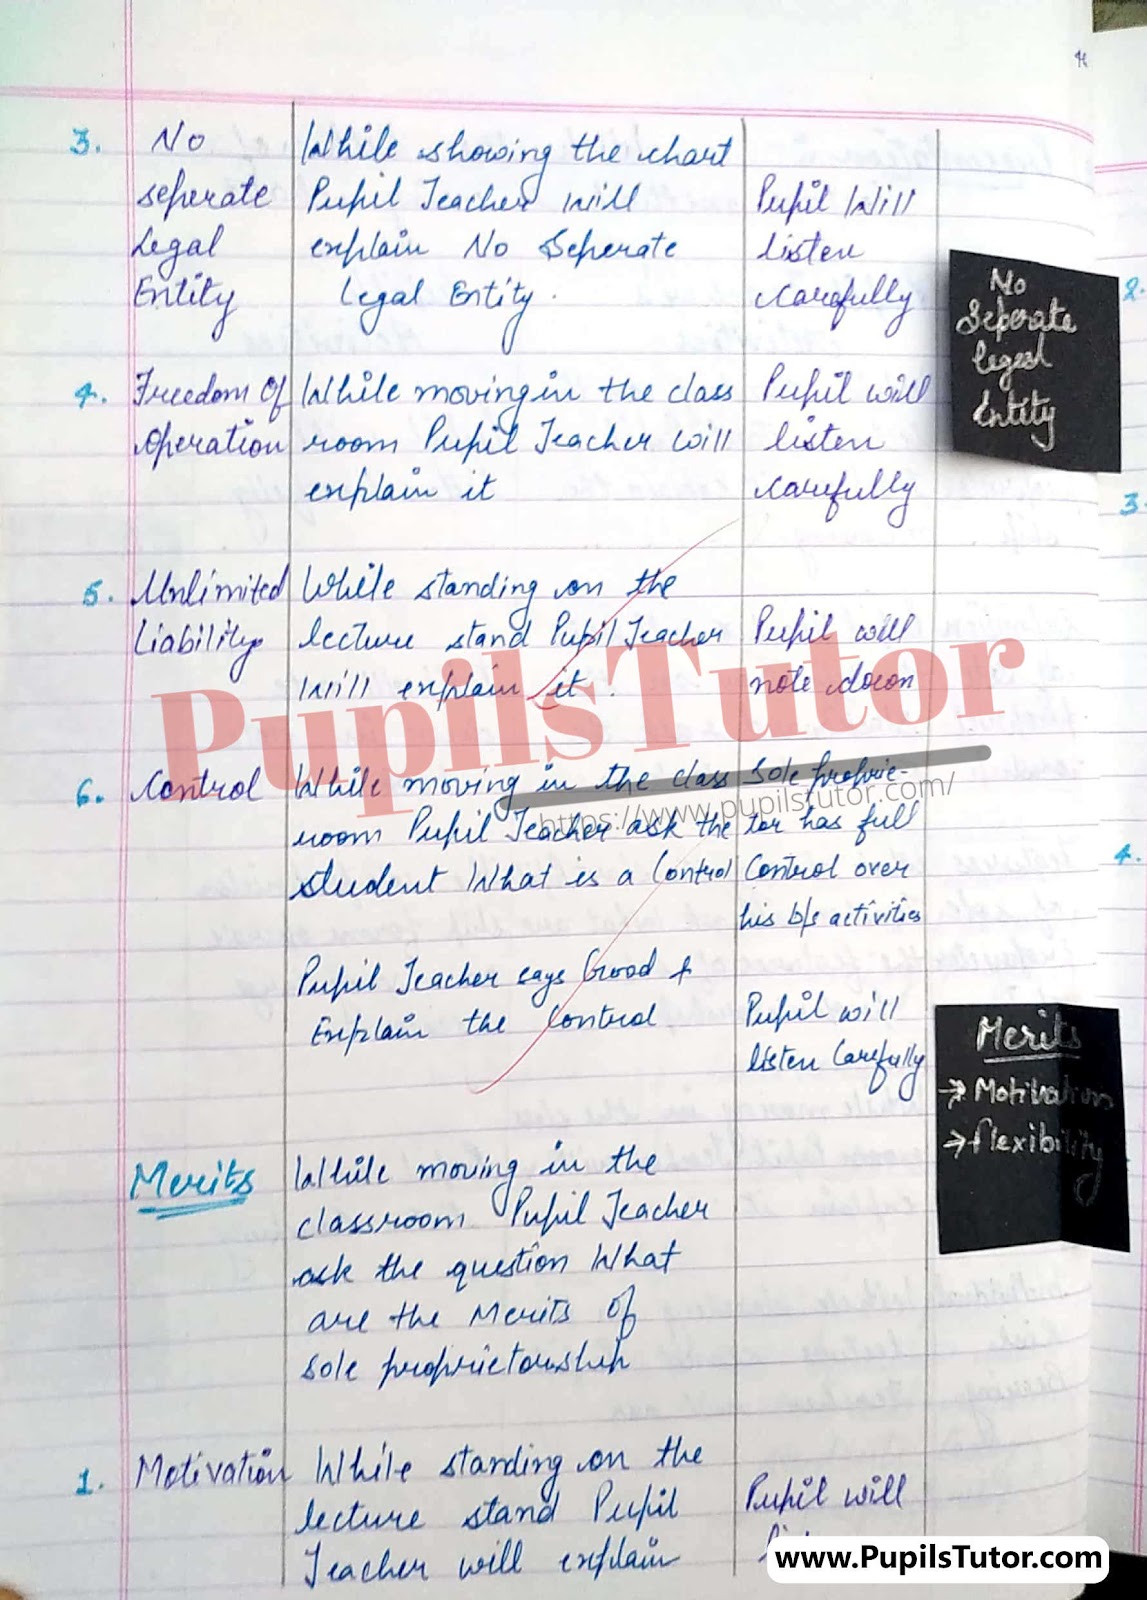 3.
No
seperate
Legal
Entity
While showing the chart
Pupil Teacher Will
explain No Seperate
Legal Entity.
Pupil Will
listen
carefully
No
Seperate
legal
Entity
4.
Freedom Of
operation
While moving in the class
room Pupil Teacher will
explain it
Pupil will
listen
carefully
5.
Unlimited
Liability
While standing on the
lecture stand Pupil Teacher
Will explain it.
Pupil will
note down
PupilsTutor
https://www.pupilstutor.com/
6.
Control
While moving in the class
room Pupil Teacher ask the
student What is a Control
Sole proprie-
tor has full
Control over
his b/s activities
Pupil Teacher says Good &
Explain the Control
Pupil will
listen Carefully
Merits
→ Motivation
→ Flexibility
Merits
While moving in the
classroom Pupil Teacher
ask the question What
are the Merits Of
Sole proprietorship
1.
Motivation
While standing on the
lecture stand Pupil
Teacher will explain
Pupil will
www.PupilsTutor.com
2.
3.
4.